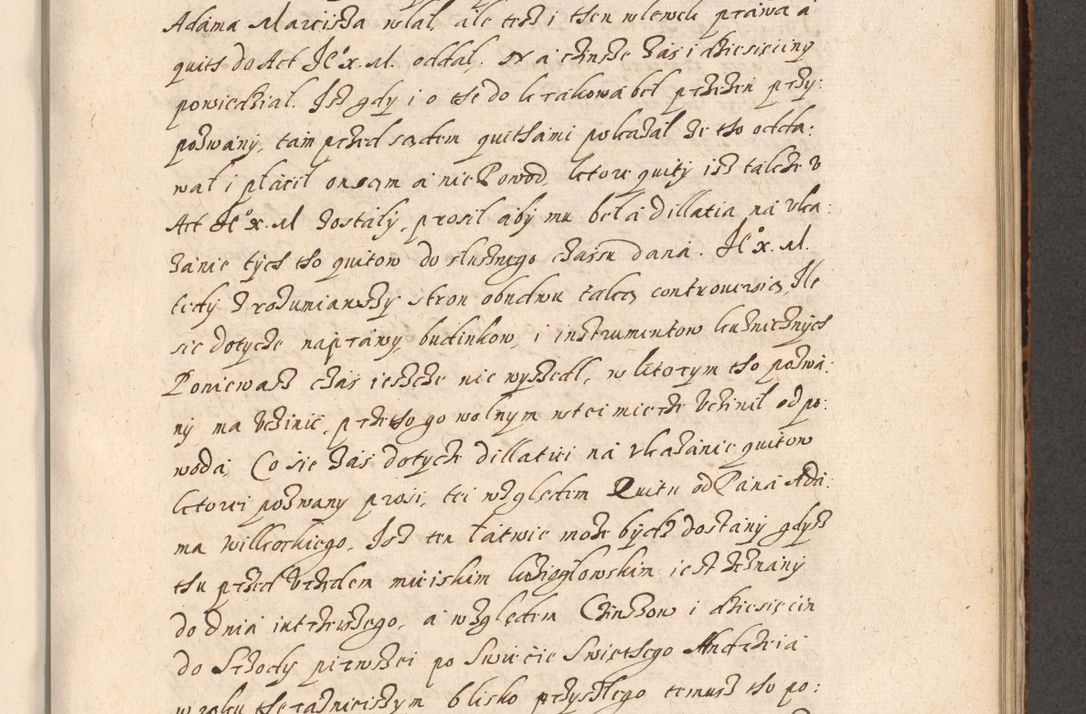 Adama Marciska wlal, ale tesz i then wlewek prawa a
quits do Act Je° x. M. oddal. A o czinsze zas i dziesięciny
powiedzial. Isz gdy i o the do Krakowa bel przezen przy:
pozwany, tam przed sądem quithami pokazal ze tho odda:
wal i placil on sam a nie Powod, ktore quity isz takze v
Act Je° x. M zostaly, prosil aby mu bela dillatia na vka
zanie tych tho quitow do slusznego czassu dana. Je° x. M.
tedy zrozumiawszy stron obudwu taką controversią, Ile
sie dotycze naprawy, budinkow, i instrumentow kuznicznych
Poniewasz czas iescze nie wyszedl, w ktorym tho pozwa:
ny ma vczinic, przetho go wolnym w tei mierze vczinil od po:
woda, Co sie zas dotycze dillatiei na vkazanie quitow
ktorei pozwany prosi, tei względem Quitu od Pana Ada:
ma Wilkockiego, Isz ten łatwie może bydz dostany gdysz
thu przed vrzędem mieiskim Koziegłowskim iest zeznany
do dnia intrzeiszego, a względem Czinszow i dziesięcin
do Srzody pierwszei po Swięcie Swięthego Andrzeia
w roku theraznieiszym blisko przyszlego temusz tho po: